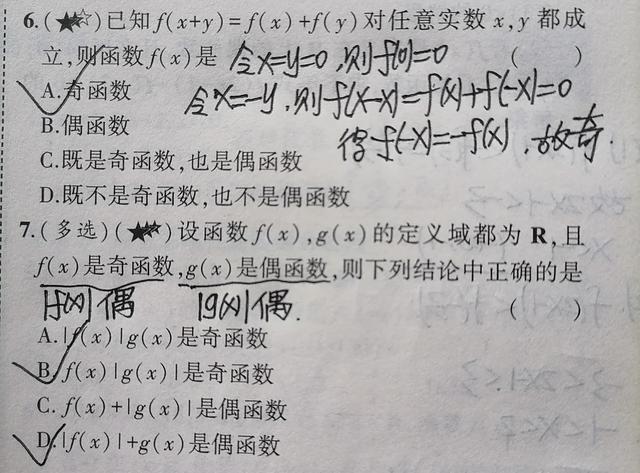 6.(★☆)已知f(x+y)=f(x)+f(y)对任意实数x,y都成
立,则函数f(x)是 令x=y=0,则f(0)=0 (    )
A.奇函数 令x=-y,则f(x-x)=f(x)+f(-x)=0
B.偶函数 得f(-x)=-f(x),故奇.
C.既是奇函数,也是偶函数
D.既不是奇函数,也不是偶函数
7.(多选)(★★)设函数f(x),g(x)的定义域都为R,且
f(x)是奇函数,g(x)是偶函数,则下列结论中正确的是
|f(x)|偶 |g(x)|偶. (    )
A.|f(x)|g(x)是奇函数
B.f(x)|g(x)|是奇函数
C.f(x)+|g(x)|是偶函数
D.|f(x)|+g(x)是偶函数